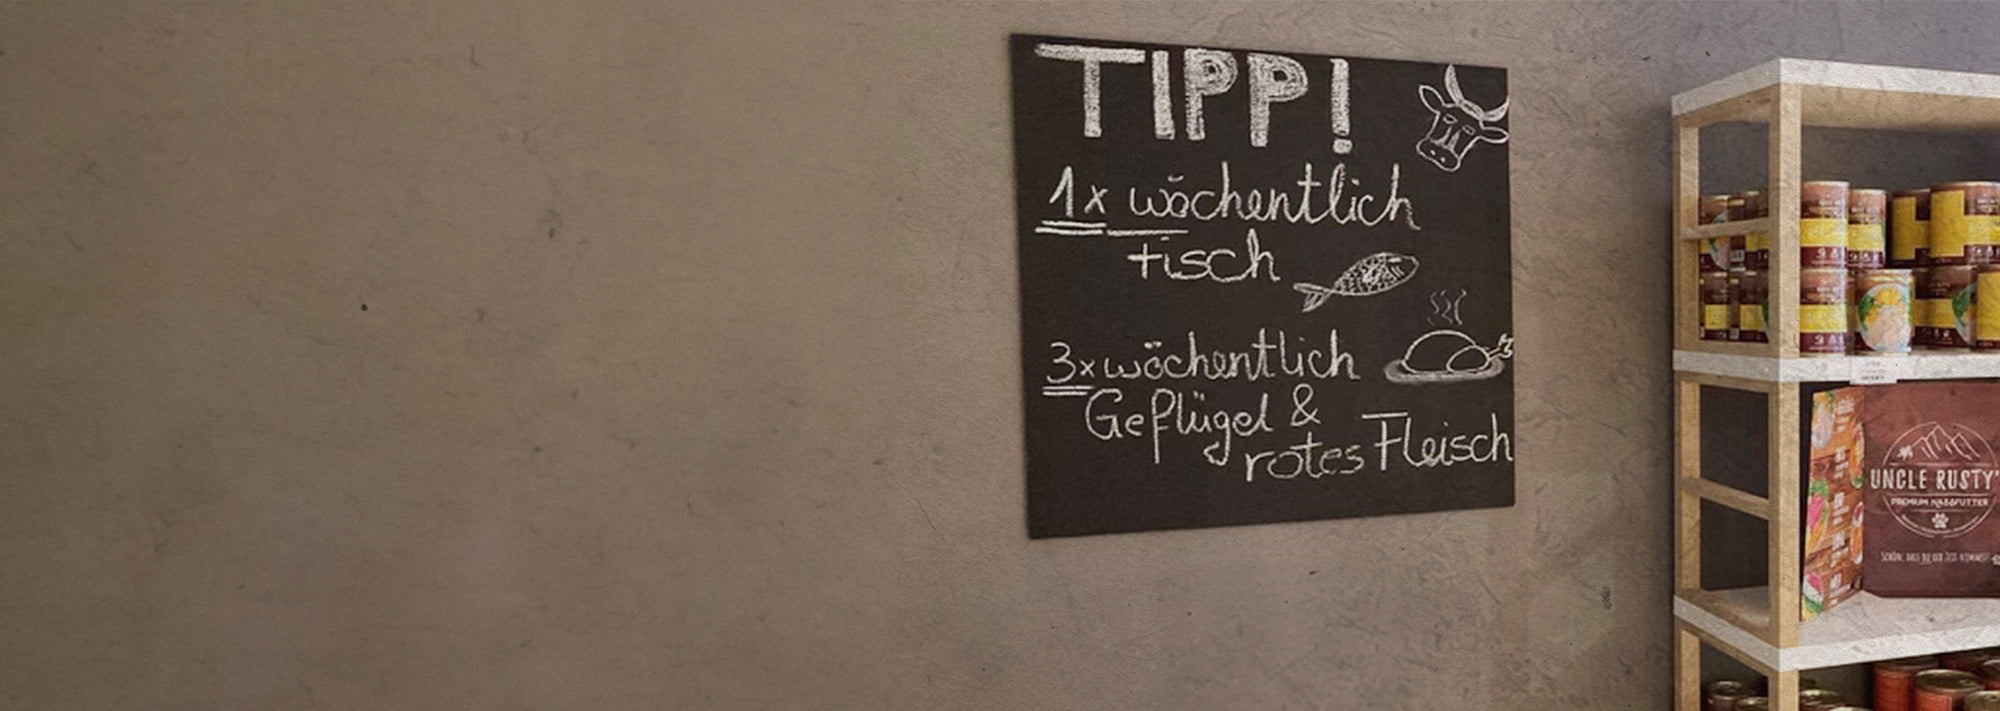 TIPP!
1x wöchentlich
Fisch
3x wöchentlich
Geflügel &
rotes Fleisch
UNCLE RUSTY'
PREMIUM NASSFUTTER
SCHÖN, DASS DU DIR ZEIT NIMMST!